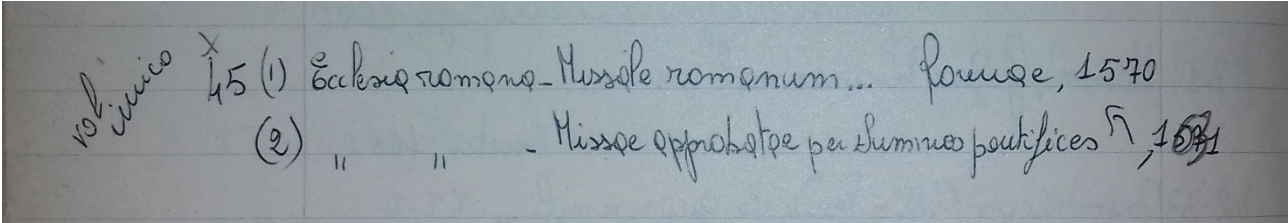 vol. unico
x
45 (1) Ecclesia romana - Missale romanum... Romae, 1570
(2) " " - Missae approbatae per summos pontifices, 1571